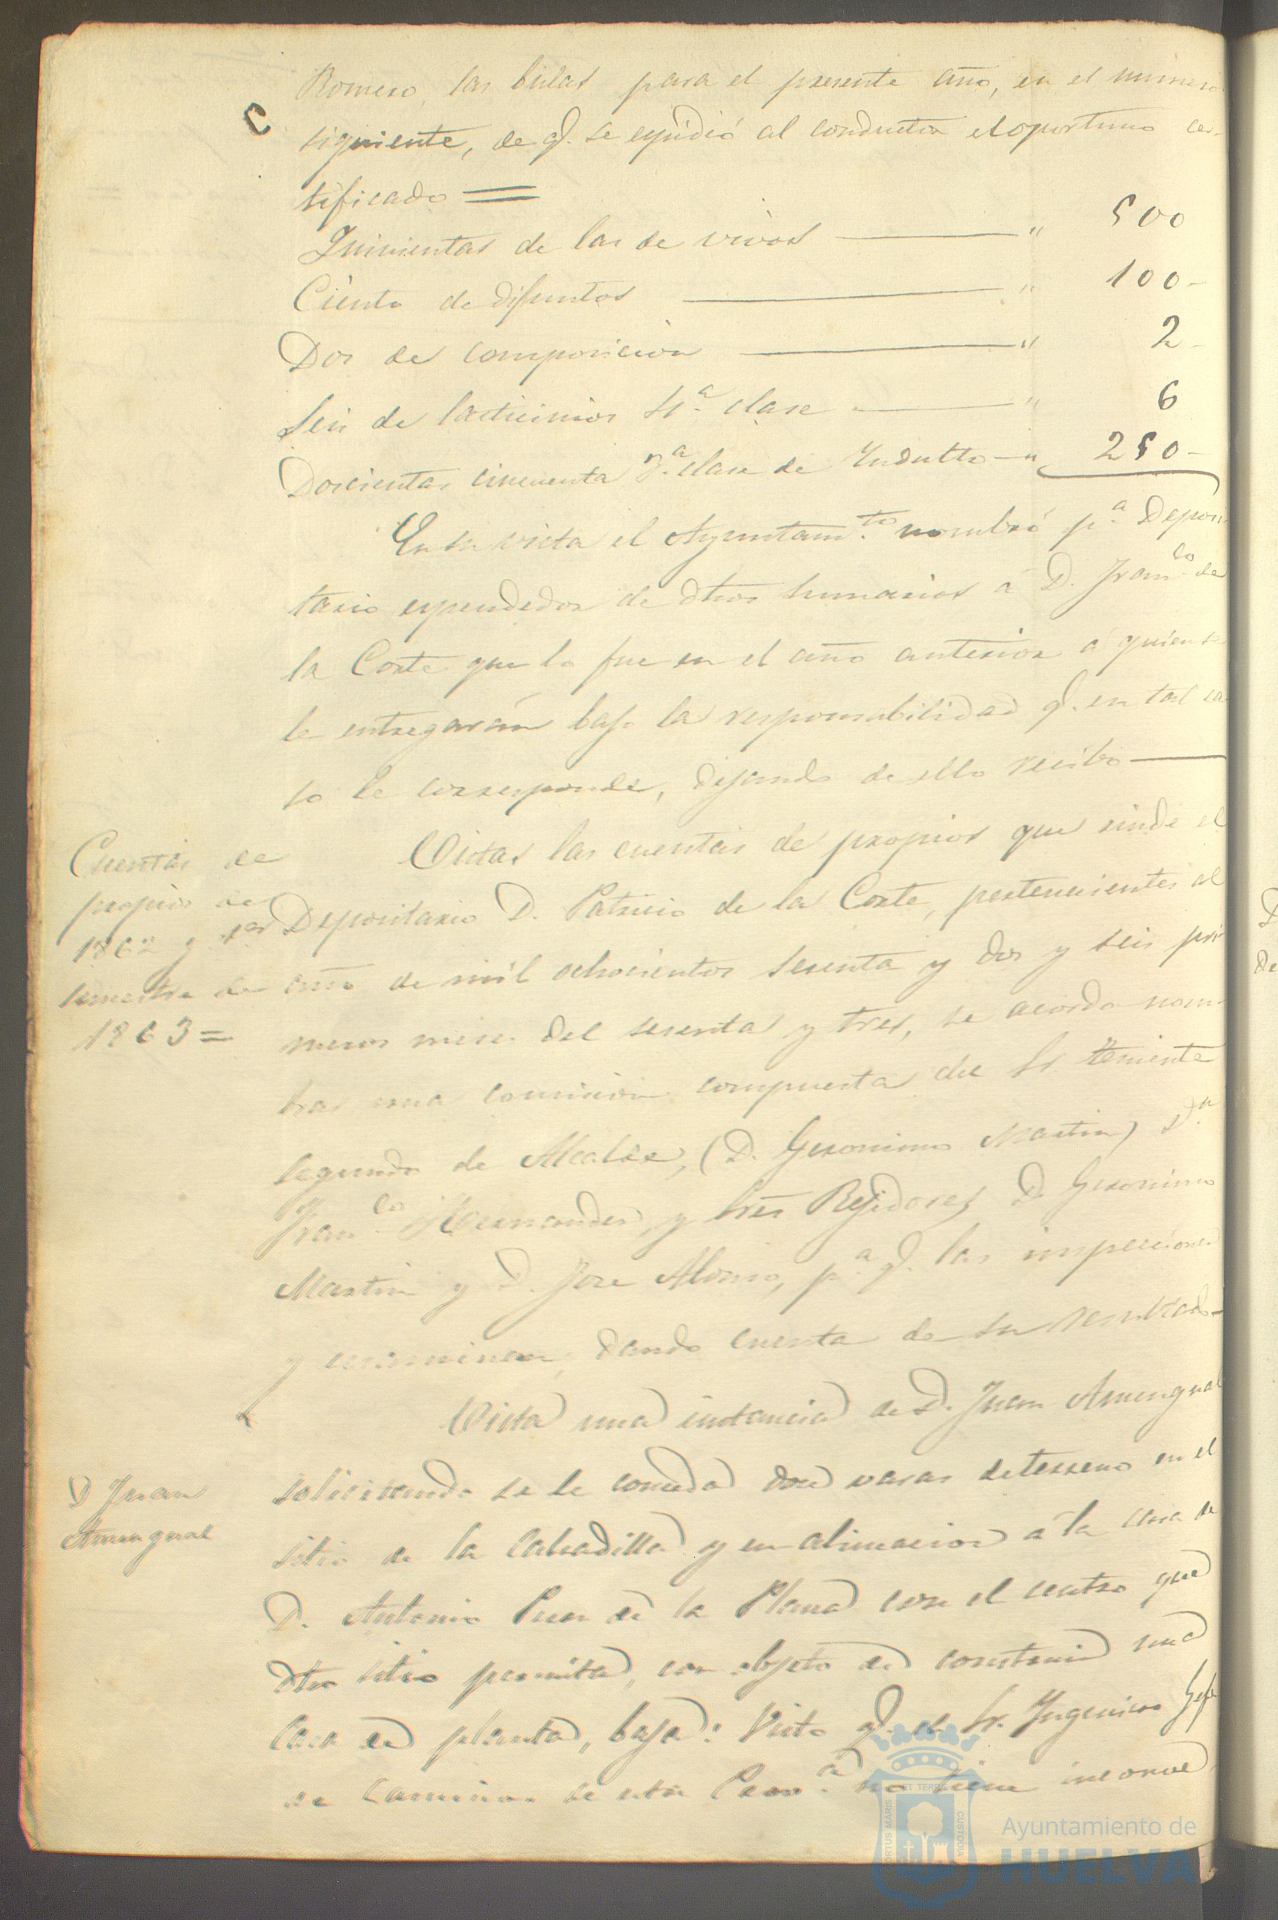 Romero, las bulas para el presente año, en el numero
siguiente, de q. se espidió al conductor el oportuno cer-
tificado =
Quinientas de las de vivos " 500
Ciento de difuntos " 100-
Dos de composicion " 2-
Seis de lacticinios 4.ª clase " 6
Doscientas cincuenta 3.ª clase de Indulto " 250-
En su vista el Ayuntam.to nombró p.ª Deposi-
tario espendedor de dhos sumarios á D. Fran.co de
la Corte que lo fue en el año anterior á quien se
le entregarán bajo la responsabilidad q. en tal ca
so le corresponde, dejando de ello recibo
Cuentas de
propios de
1862 y 1.er
semestre de
1863 =
Vistas las cuentas de propios que rinde el
Depositario D. Patricio de la Corte, pertenecientes al
año de mil ochocientos sesenta y dos y seis pri
meros meses del sesenta y tres, se acordo nom-
brar una comision compuesta del Sr teniente
segundo de Alcalde, (D. Geronimo Martin) D.n
Fran.co Hernandez, y tres Rejidores D. Geronimo
Martin y D. Jose Alonso, p.ª q. las inspeccionen
y examinen, dando cuenta de su resultado-
D Juan
Amengual
Vista una instancia de D. Juan Amengual
solicitando se le conceda doce varas de terreno en el
sitio de la Calzadilla y en alineacion á la casa de
D. Antonio de la con el centro que
dho sitio permita, con objeto de construir una
casa de planta, baja: Visto q. el Sr. Ingeniero Gefe
de Caminos de esta Prov.ª no tiene inconve
PORTUS MARIS ET TERRAE CUSTODIA
Ayuntamiento de
HUELVA